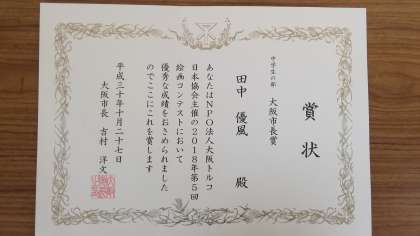 賞状
中学生の部
大阪市長賞
田中 優風 殿
あなたはNPO法人大阪トルコ
日本協会主催の2018年第5回
絵画コンテストにおいて
優秀な成績をおさめられました
のでここにこれを賞します
平成三十年十月二十七日
大阪市長 吉村 洋文